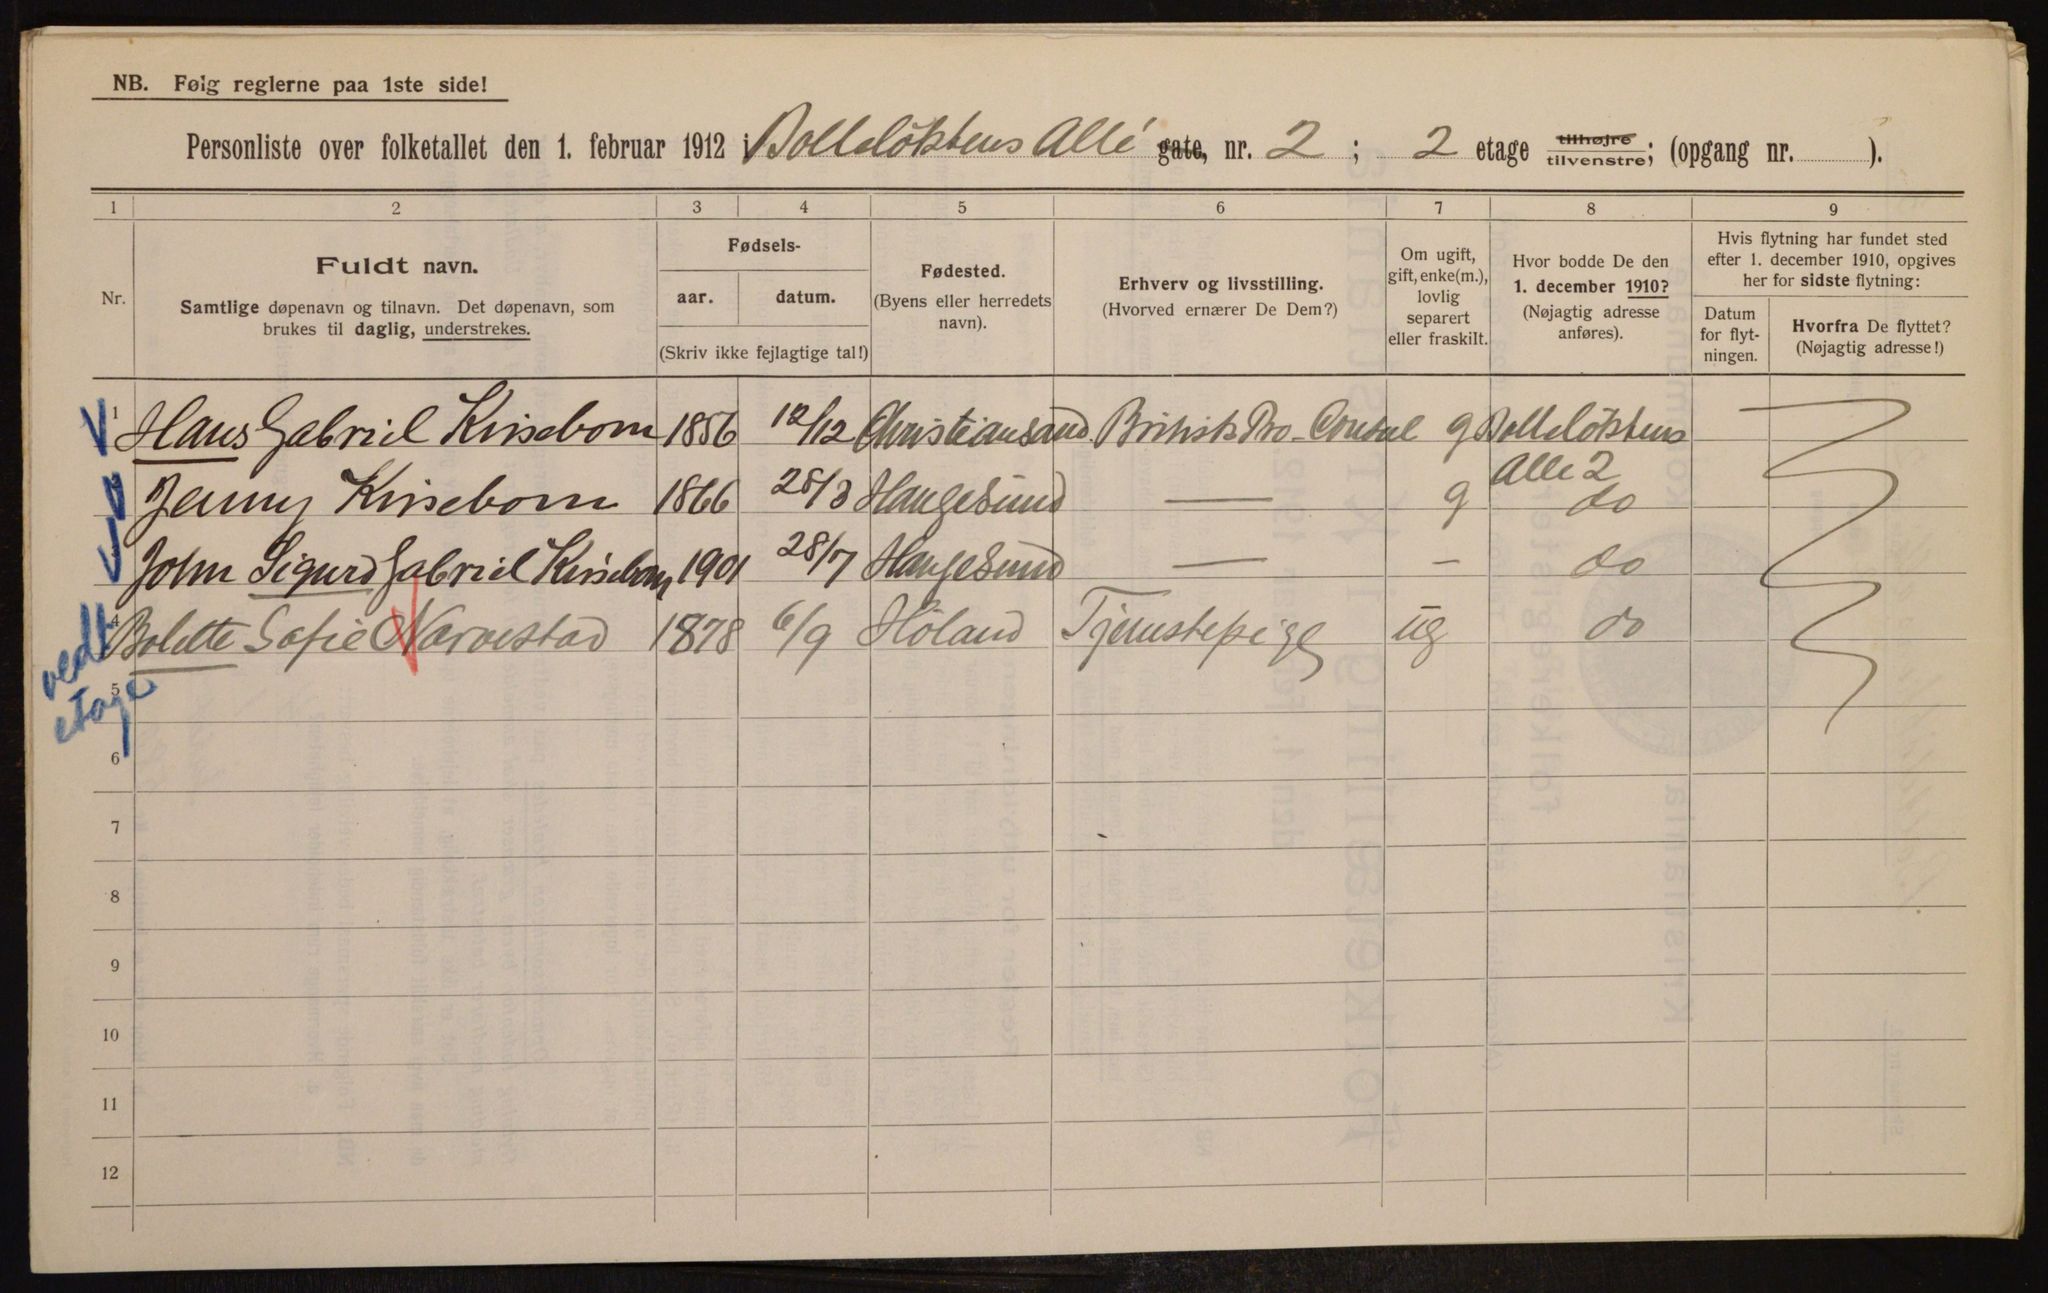 NB. Følg reglerne paa 1ste side!
Personliste over folketallet den 1. februar 1912 i Bolteløkkens Allé gate, nr. 2 ; 2 etage tilhøjre tilvenstre; (opgang nr. ).
1 2 3 4 5 6 7 8 9
Nr.
Fuldt navn.
Samtlige døpenavn og tilnavn. Det døpenavn, som
brukes til daglig, understrekes.
Fødsels-
aar. datum.
(Skriv ikke fejlagtige tal!)
Fødested.
(Byens eller herredets
navn).
Erhverv og livsstilling.
(Hvorved ernærer De Dem?)
Om ugift,
gift, enke(m.),
lovlig
separert
eller fraskilt.
Hvor bodde De den
1. december 1910?
(Nøjagtig adresse
anføres).
Hvis flytning har fundet sted
efter 1. december 1910, opgives
her for sidste flytning:
Datum
for flyt-
ningen.
Hvorfra De flyttet?
(Nøjagtig adresse!)
1 Hans Gabriel Kirsebom 1856 12/12 Christiansand British Pro-Consul g Bolteløkkens
Alle 2
Jenny Kirsebom 1866 28/3 Haugesund — g do
John Sigurd Gabriel Kirsebom 1901 28/7 Haugesund — — do
4 Bolette Sofie Narvestad 1878 6/9 Høland Tjenestepige ug do
vedt
etage
5
6
7
8
9
10
11
12